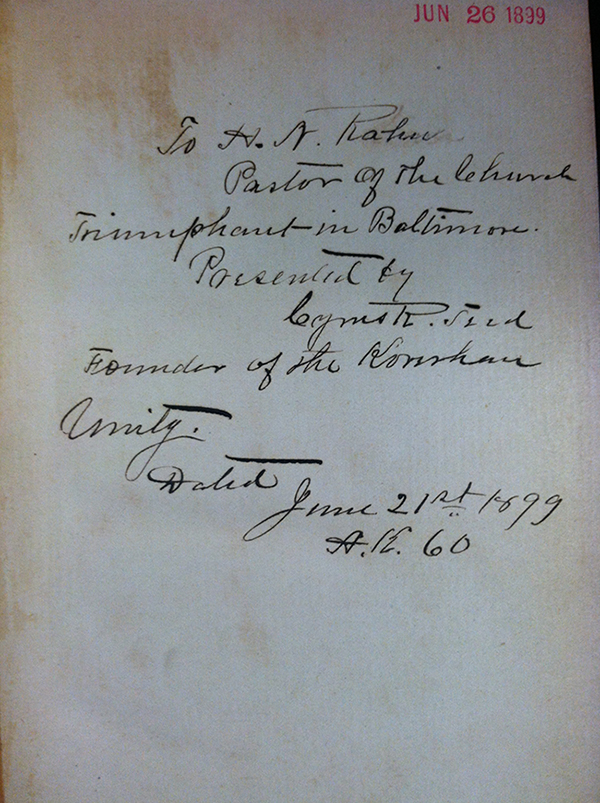 JUN 26 1899
To H. N. Rahn
Pastor of the Church
Triumphant in Baltimore.
Presented by
Cyrus R. Teed
Founder of the Koreshan
Unity.
Dated
June 21st 1899
A.K. 60